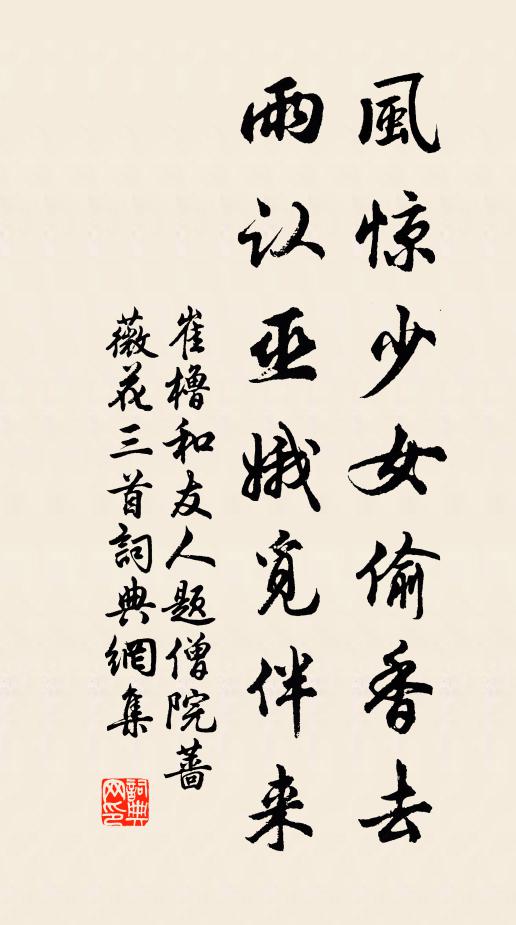 風惊少女偷香去
雨认巫娥觅伴来
崔櫓和友人題僧院薔
薇花三首詞典網集
詞典
网印